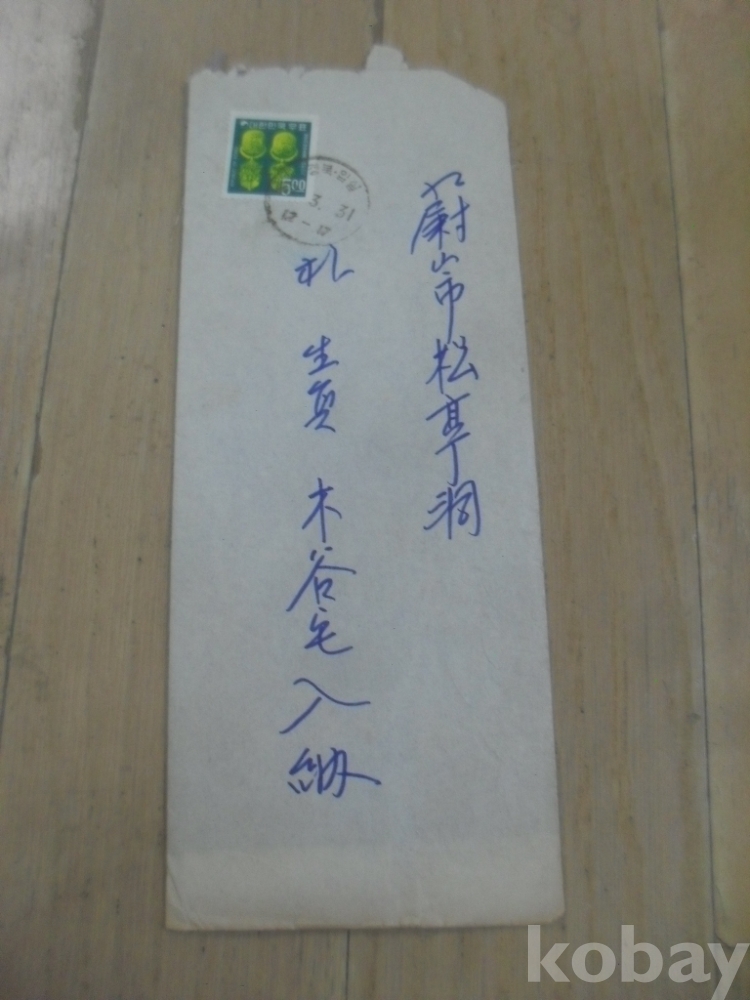 대한민국우표
500
3. 31
蔚山市松亭洞
朴 生員 木谷宅入納
kobay